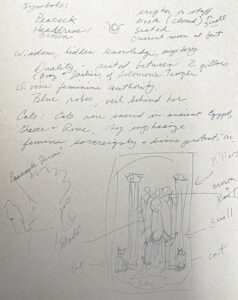 Symbols:
Peacock scepter or staff
Headdress Book (closed) or scroll
Crown Seated
Crescent moon at feet
Wisdom, hidden knowledge, mystery
Duality - seated between 2 pillars
(Boaz & Jachin of Solomon's Temple)
Divine feminine authority
Blue robes, veil behind her
Cats: Cats were sacred in ancient Egypt,
Greece & Rome. They emphasize
feminine sovereignty + divine protection
Peacock throne
Pillars
crown
scroll
cat
cat